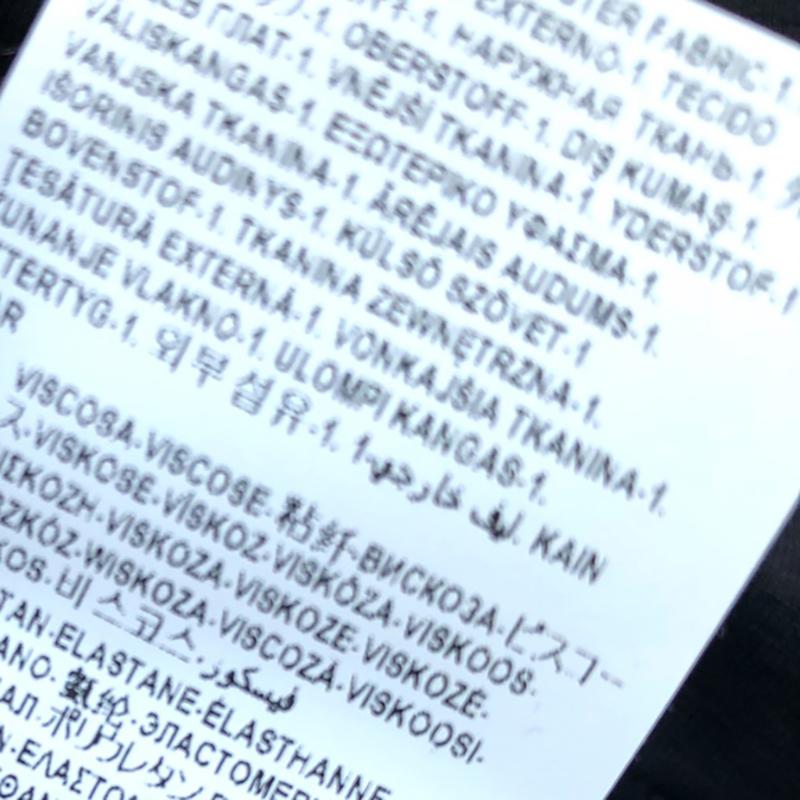 FABRIC-1.
EXTERNO-1. TECIDO
НАРУЖНАЯ ТКАНЬ-1.
ПЛАТ-1. OBERSTOFF-1. DIŞ KUMAŞ-1.
VÄLISKANGAS-1. VNĚJŠÍ TKANINA-1. YDERSTOF-1
VANJSKA TKANINA-1. ΕΞΩΤΕΡΙΚΟ ΥΦΑΣΜΑ-1.
IŠORINIS AUDINYS-1. ĀRĒJAIS AUDUMS-1.
BOVENSTOF-1. KÜLSŐ SZÖVET-1
ŢESĂTURĂ EXTERNĂ-1. TKANINA ZEWNĘTRZNA-1.
ZUNANJE VLAKNO-1. VONKAJŠIA TKANINA-1.
TTERTYG-1. ULOMPI KANGAS-1.
외부섬유-1. ليف خارجي-1. KAIN
AR
VISCOSA-VISCOSE-粘纤-ВИСКОЗА-ビスコー
ス-VISKOSE-VİSKOZ-VISKÓZA-VISKOOS-
ΒΙΣΚΟΖΗ-VISKOZA-VISKOZE-VISKOZĖ-
WISKOZA-VISCOZĂ-VISKOOSI-
KOS-비스코스-فيسكوز
TAN-ELASTANE-ÉLASTHANNE
ANO-氨纶-ЭЛАСТОМЕР
ポリウレタン
ΕΛΑΣΤΟ